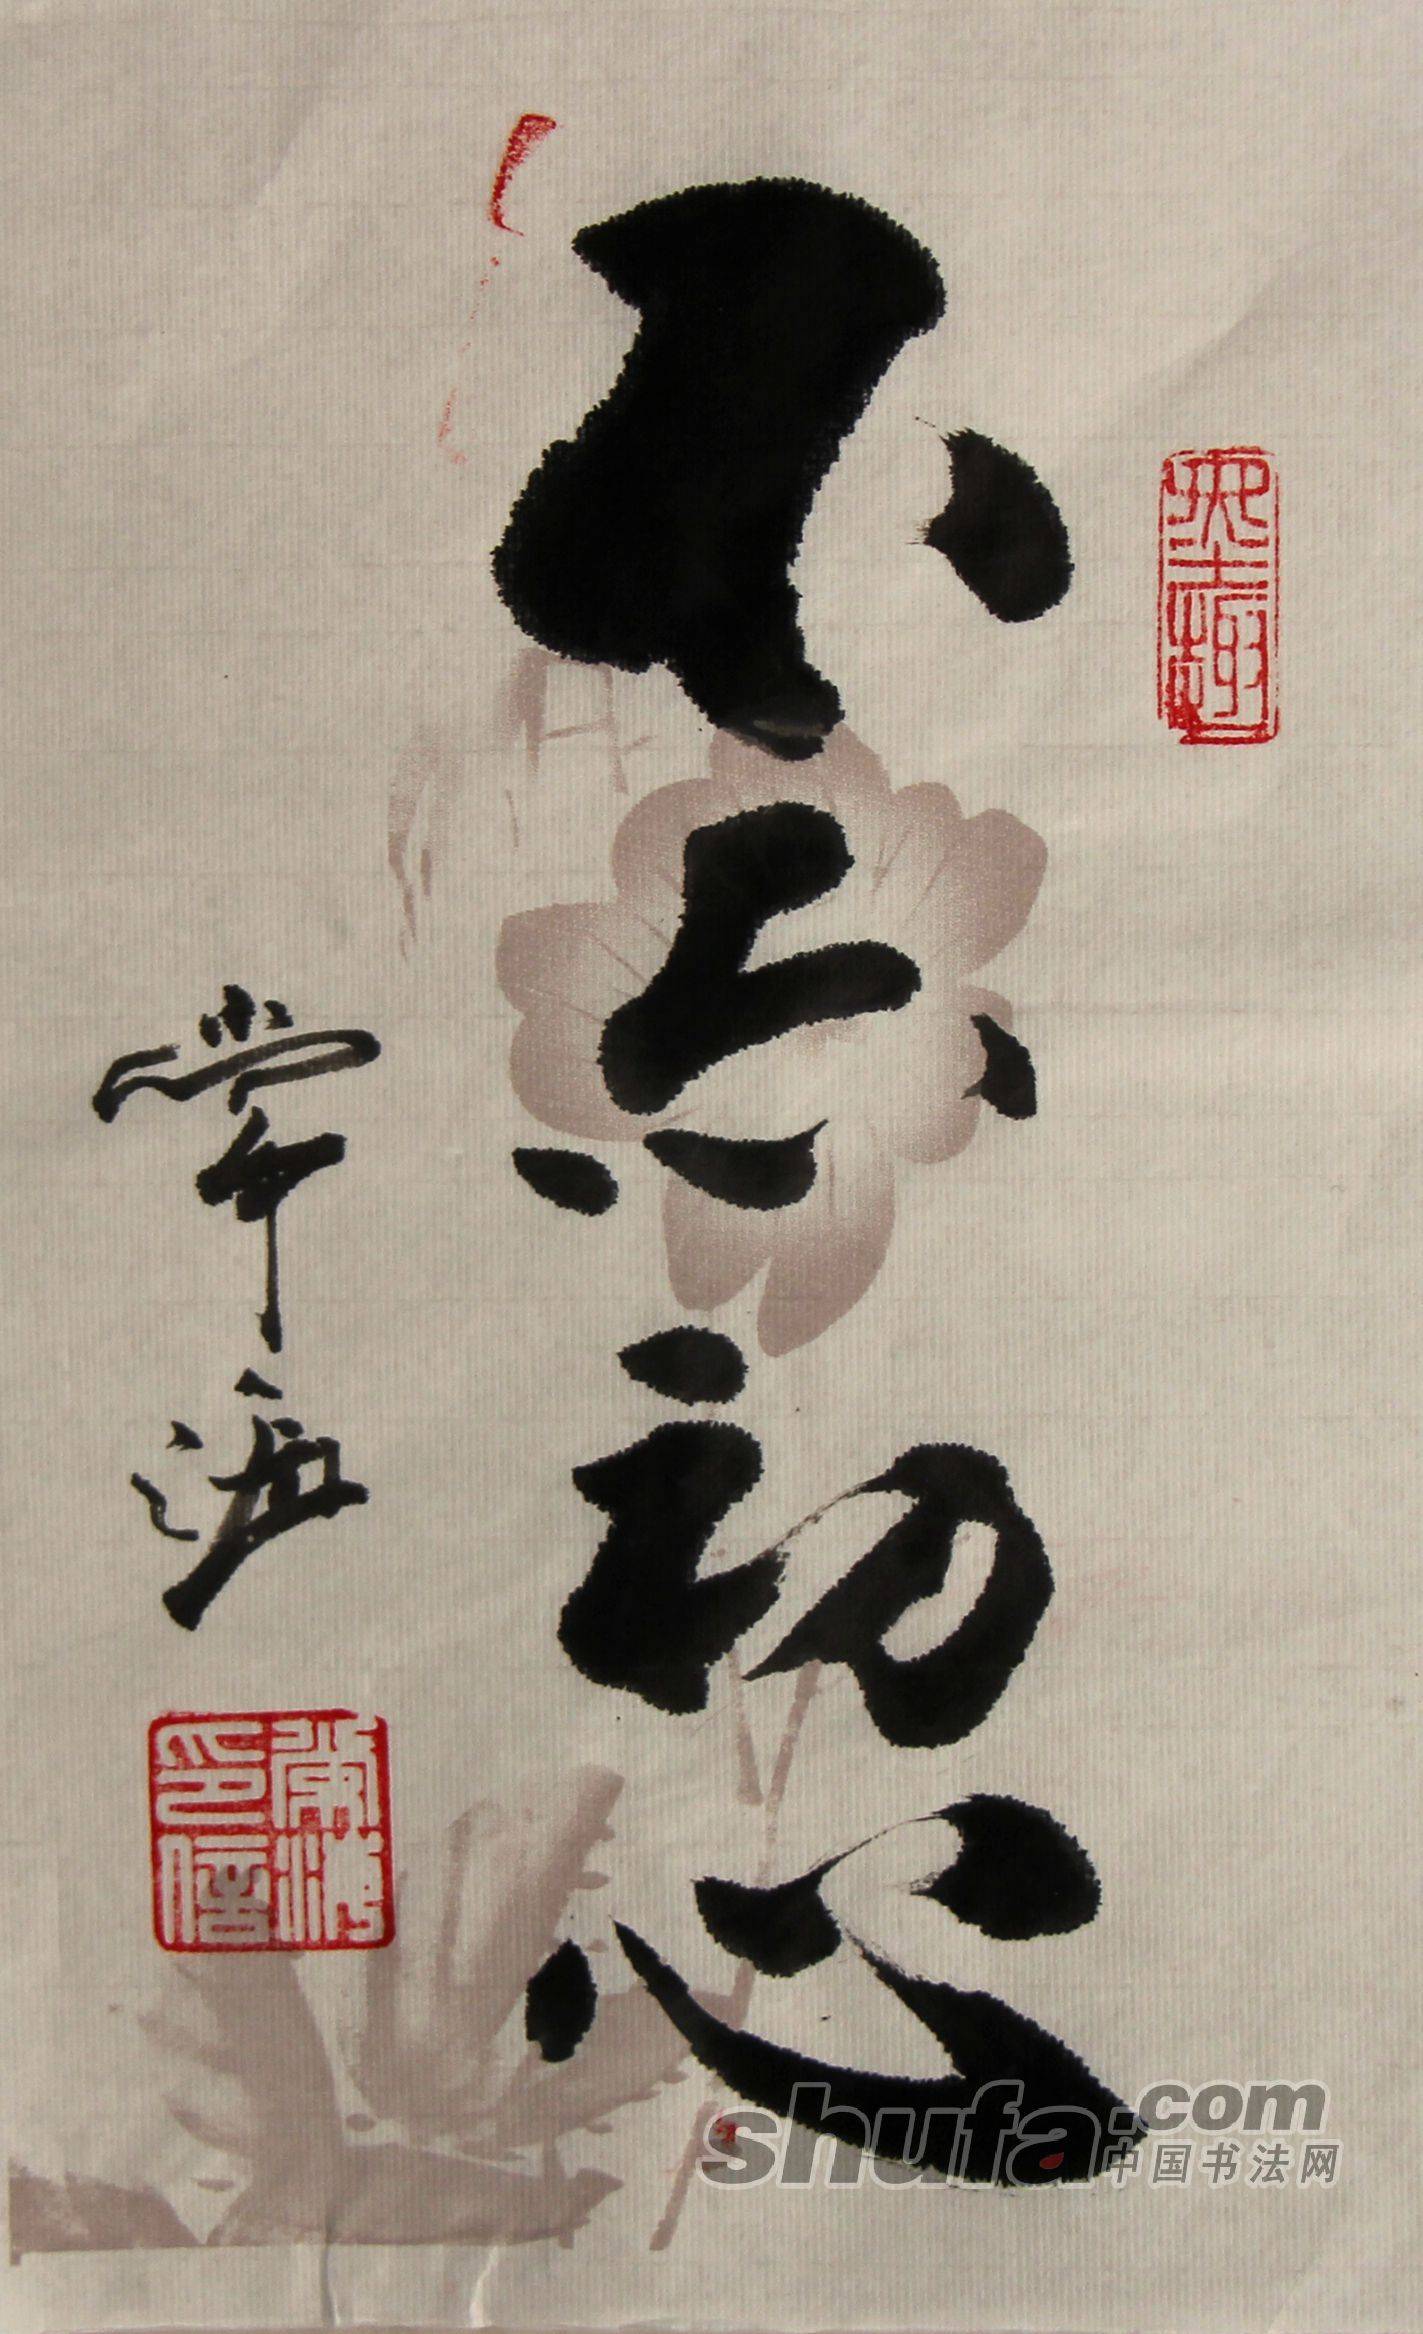 不忘初心
常海
常海印信
shufa.com
中国书法网